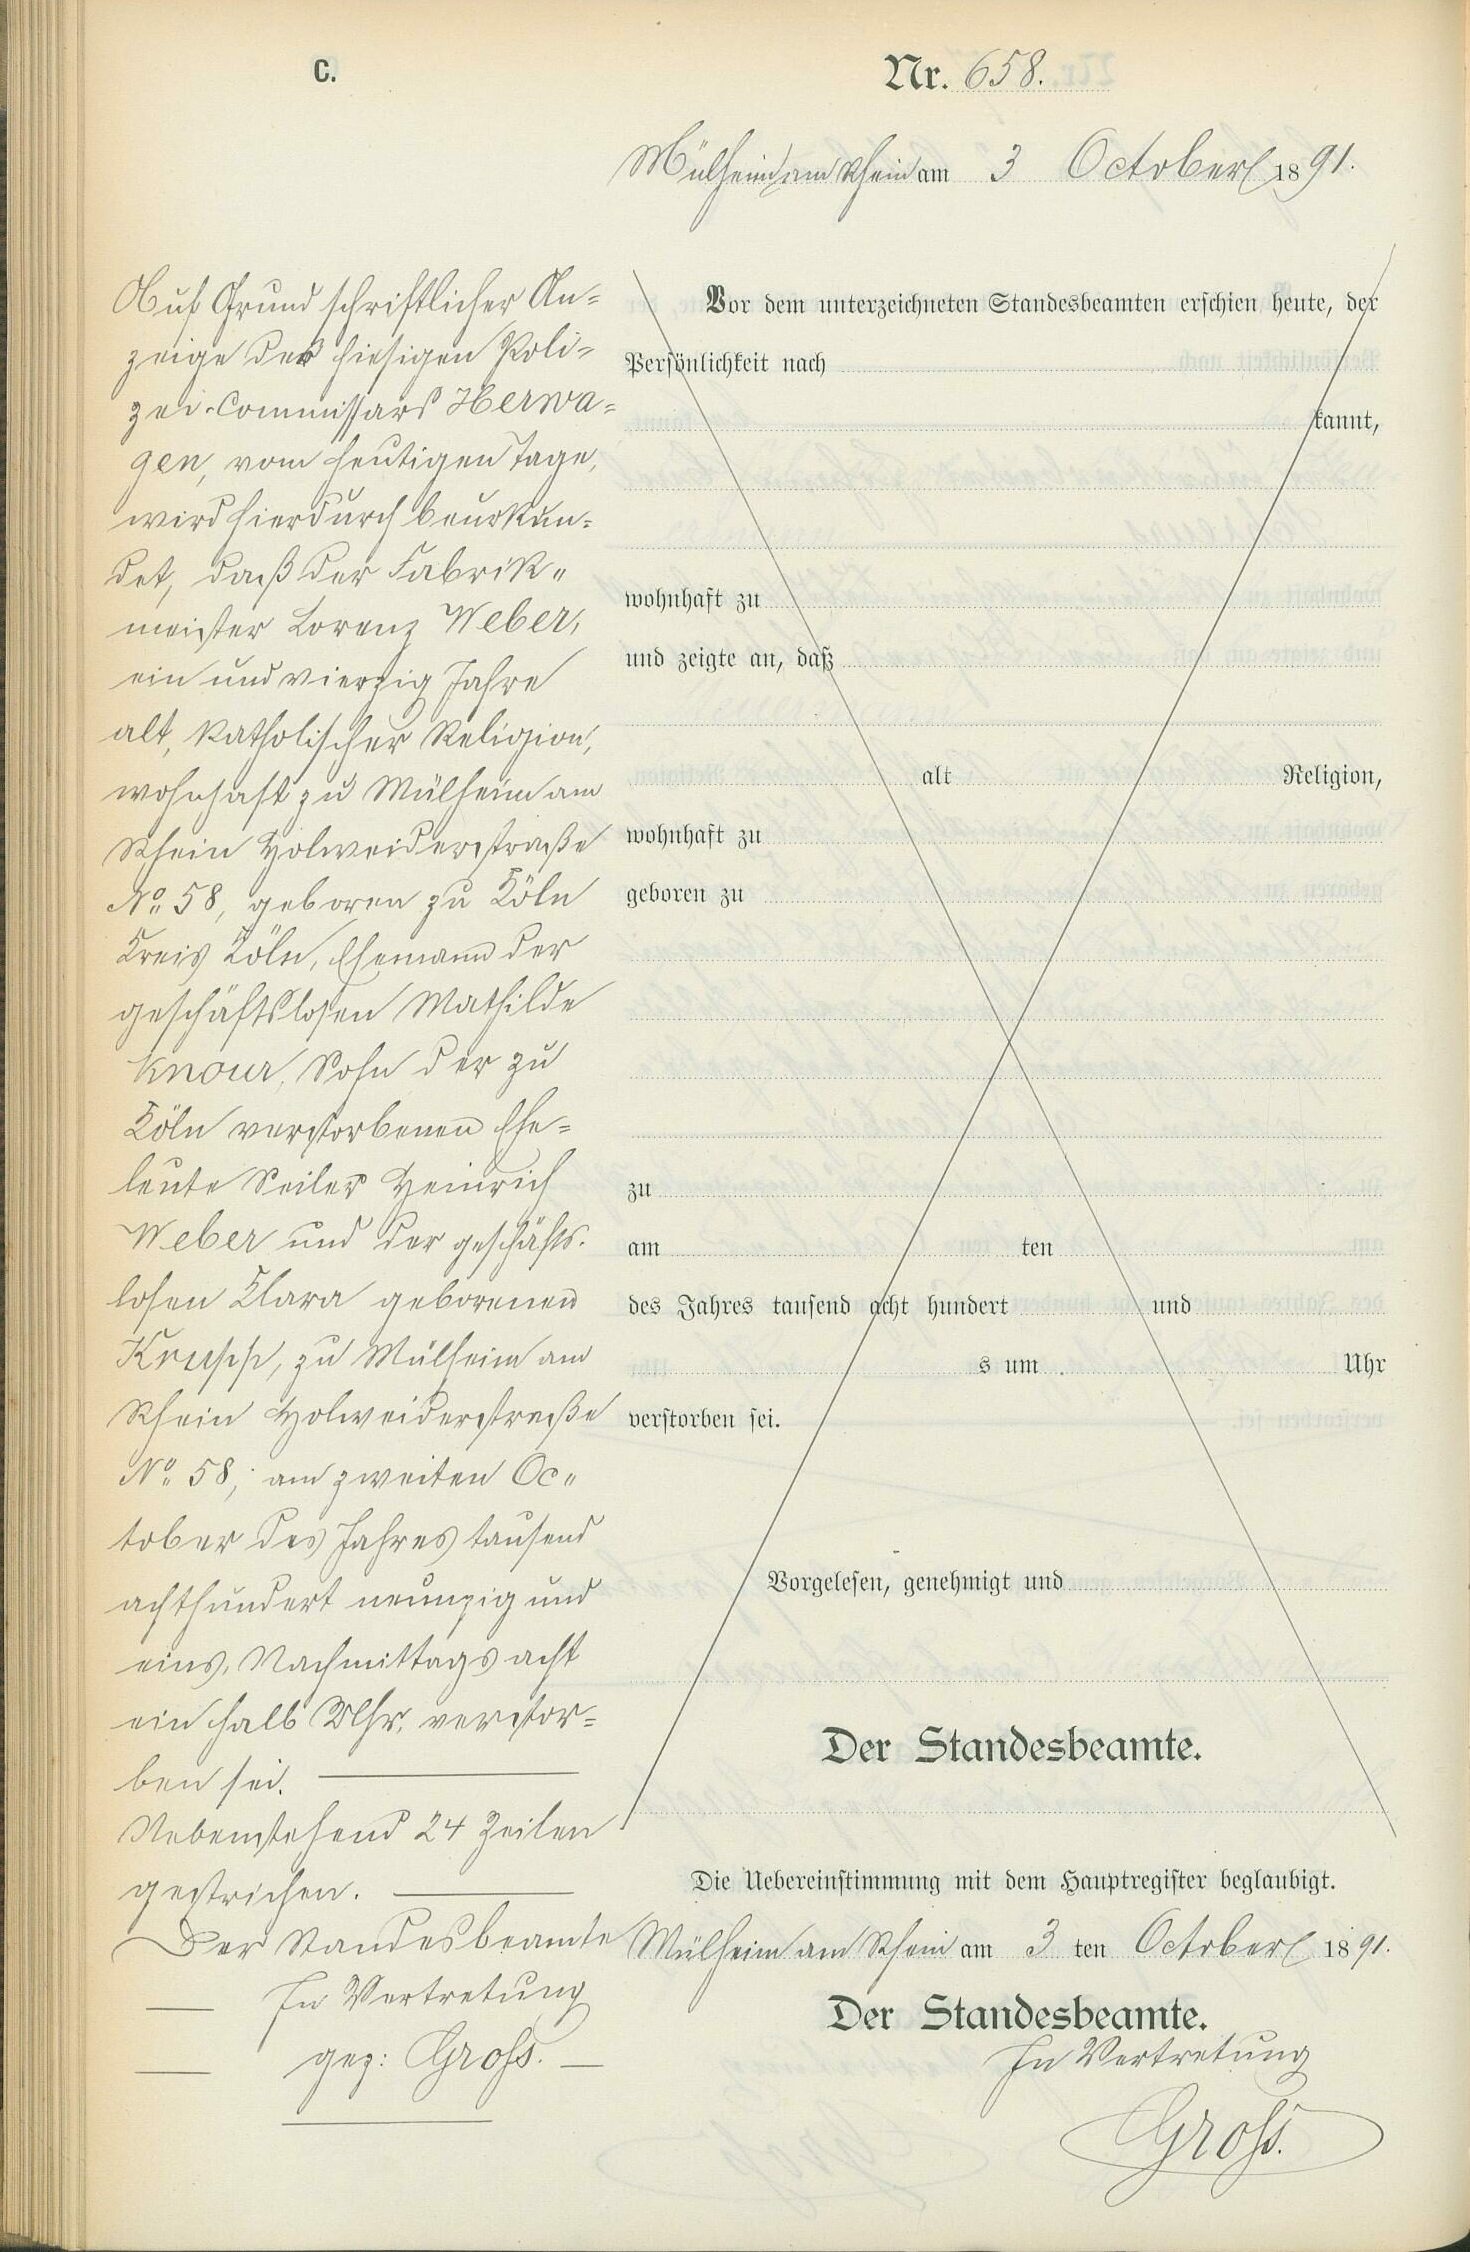 C.
Nr. 658.
Mülheim am Rhein am 3 October 1891.
Auf Grund schriftlicher An=
zeige des hiesigen Poli=
zei-Commissars Herwa=
gen, vom heutigen Tage,
wird hierdurch beurkun=
det, daß der Fabrik=
meister Lorenz Weber,
ein und vierzig Jahre
alt, katholischer Religion,
wohnhaft zu Mülheim am
Rhein Holweiderstraße
No 58, geboren zu Köln
Kreis Köln, Ehemann der
geschäftslosen Mathilde
Knour, Sohn der zu
Köln verstorbenen Ehe=
leute Seiler Heinrich
Weber und der geschäfts-
losen Clara geborenen
Krupp, zu Mülheim am
Rhein Holweiderstraße
No 58, am zweiten Oc=
tober des Jahres tausend
achthundert neunzig und
eins, Nachmittags acht
ein halb Uhr, verstor=
ben sei.
Nebenstehend 24 Zeilen
gestrichen.
Der Standesbeamte
In Vertretung
gez: Gross.
Vor dem unterzeichneten Standesbeamten erschien heute, der
Persönlichkeit nach
kannt,
wohnhaft zu
und zeigte an, daß
alt Religion,
wohnhaft zu
geboren zu
zu
am ten
des Jahres tausend acht hundert und
s um Uhr
verstorben sei.
Vorgelesen, genehmigt und
Der Standesbeamte.
Die Uebereinstimmung mit dem Hauptregister beglaubigt.
Mülheim am Rhein am 3 ten October 1891.
Der Standesbeamte.
In Vertretung
Gross.